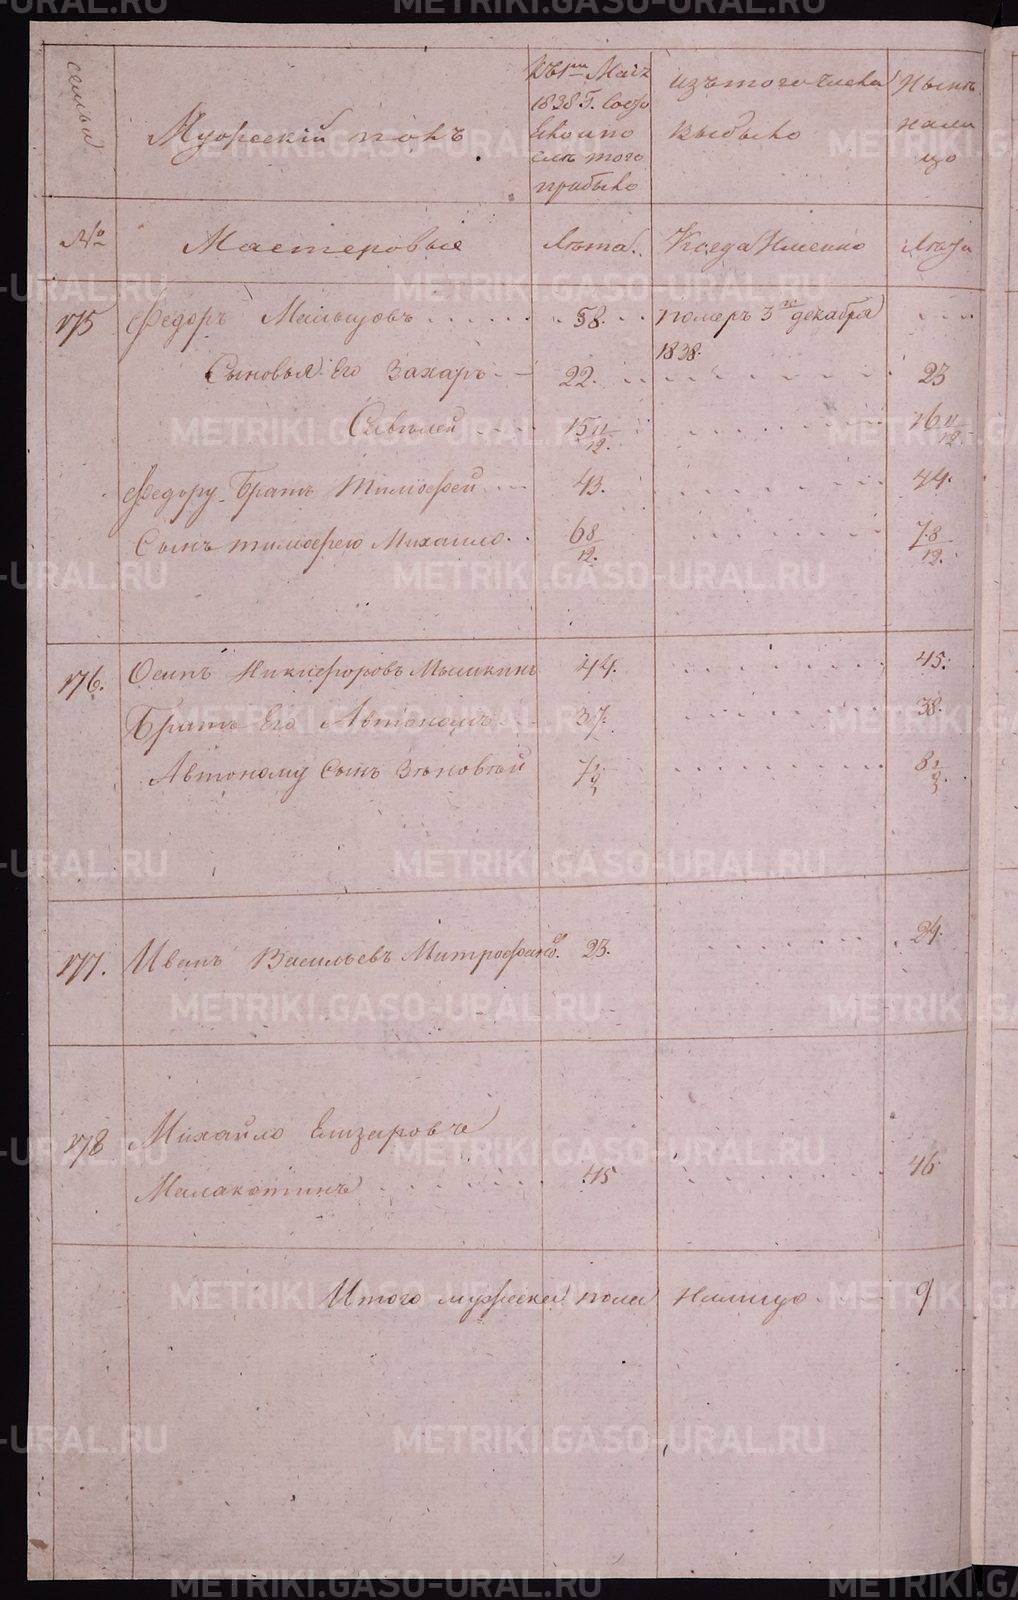 семьи
Мужескій полъ
Къ 1му Маія
1838 г. состо
яло и по
слѣ того
прибыло
Изъ того числа
выбыло
Нынѣ
нали
цо
№
Мастеровые
Лѣта.
Когда Именно
Лѣта
175
Федоръ Мальцовъ
58.
померъ 3го декабря
1838.
Сыновья Его Захаръ
22.
23
Савелей
15 11/12.
16 11/12.
Федору Братъ Тимофей
43.
44.
Сынъ тимофею Михаило
6 8/12.
7 8/12.
176.
Осипъ Никифоровъ Мышкинъ
44.
45.
Братъ Его Автономъ
37.
38.
Автоному сынъ Зѣновѣй
7 1/2
8 1/2
177.
Иванъ Васильевъ Митрофановъ.
23.
24.
178
Михайло Елизаровъ
Малакотинъ
45
46
Итого мужеска пола Налицо
9
METRIKI.GASO-URAL.RU